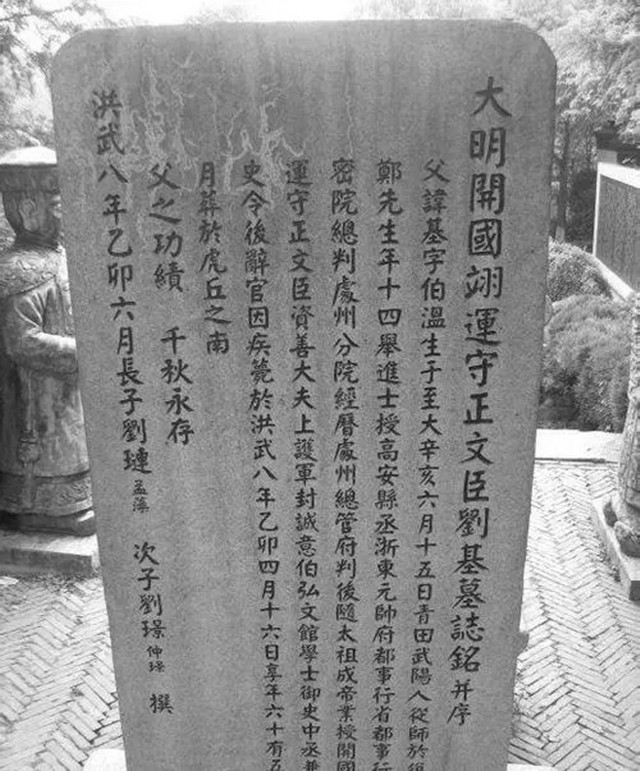 大明開國翊運守正文臣劉基墓誌銘 并序
父諱基字伯溫生于至大辛亥六月十五日青田武陽人從師於復
鄭先生年十四舉進士授高安縣丞浙東元帥府都事行省都事行
密院總判處州分院經曆處州總管府判後隨太祖成帝業授開國
運守正文臣資善大夫上護軍封誠意伯弘文館學士御史中丞兼
史令後辭官因疾薨於洪武八年乙卯四月十六日享年六十有五
月葬於虎丘之南
父之功績 千秋永存
洪武八年乙卯六月長子劉璉孟藻 次子劉璟仲璟 撰